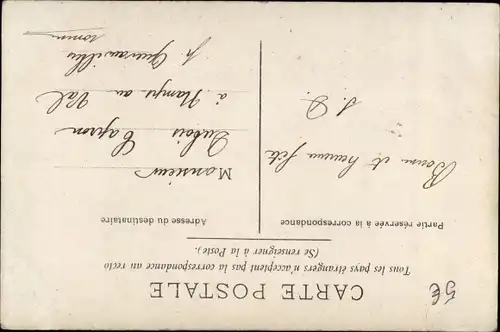 CARTE POSTALE
Tous les pays étrangers n'acceptent pas la correspondance au recto
(Se renseigner à la Poste).
Partie réservée à la correspondance
Adresse du destinataire
Bonne et heureuse fête
Monsieur
Dubois Capron
à Namps au Val
Somme
5€